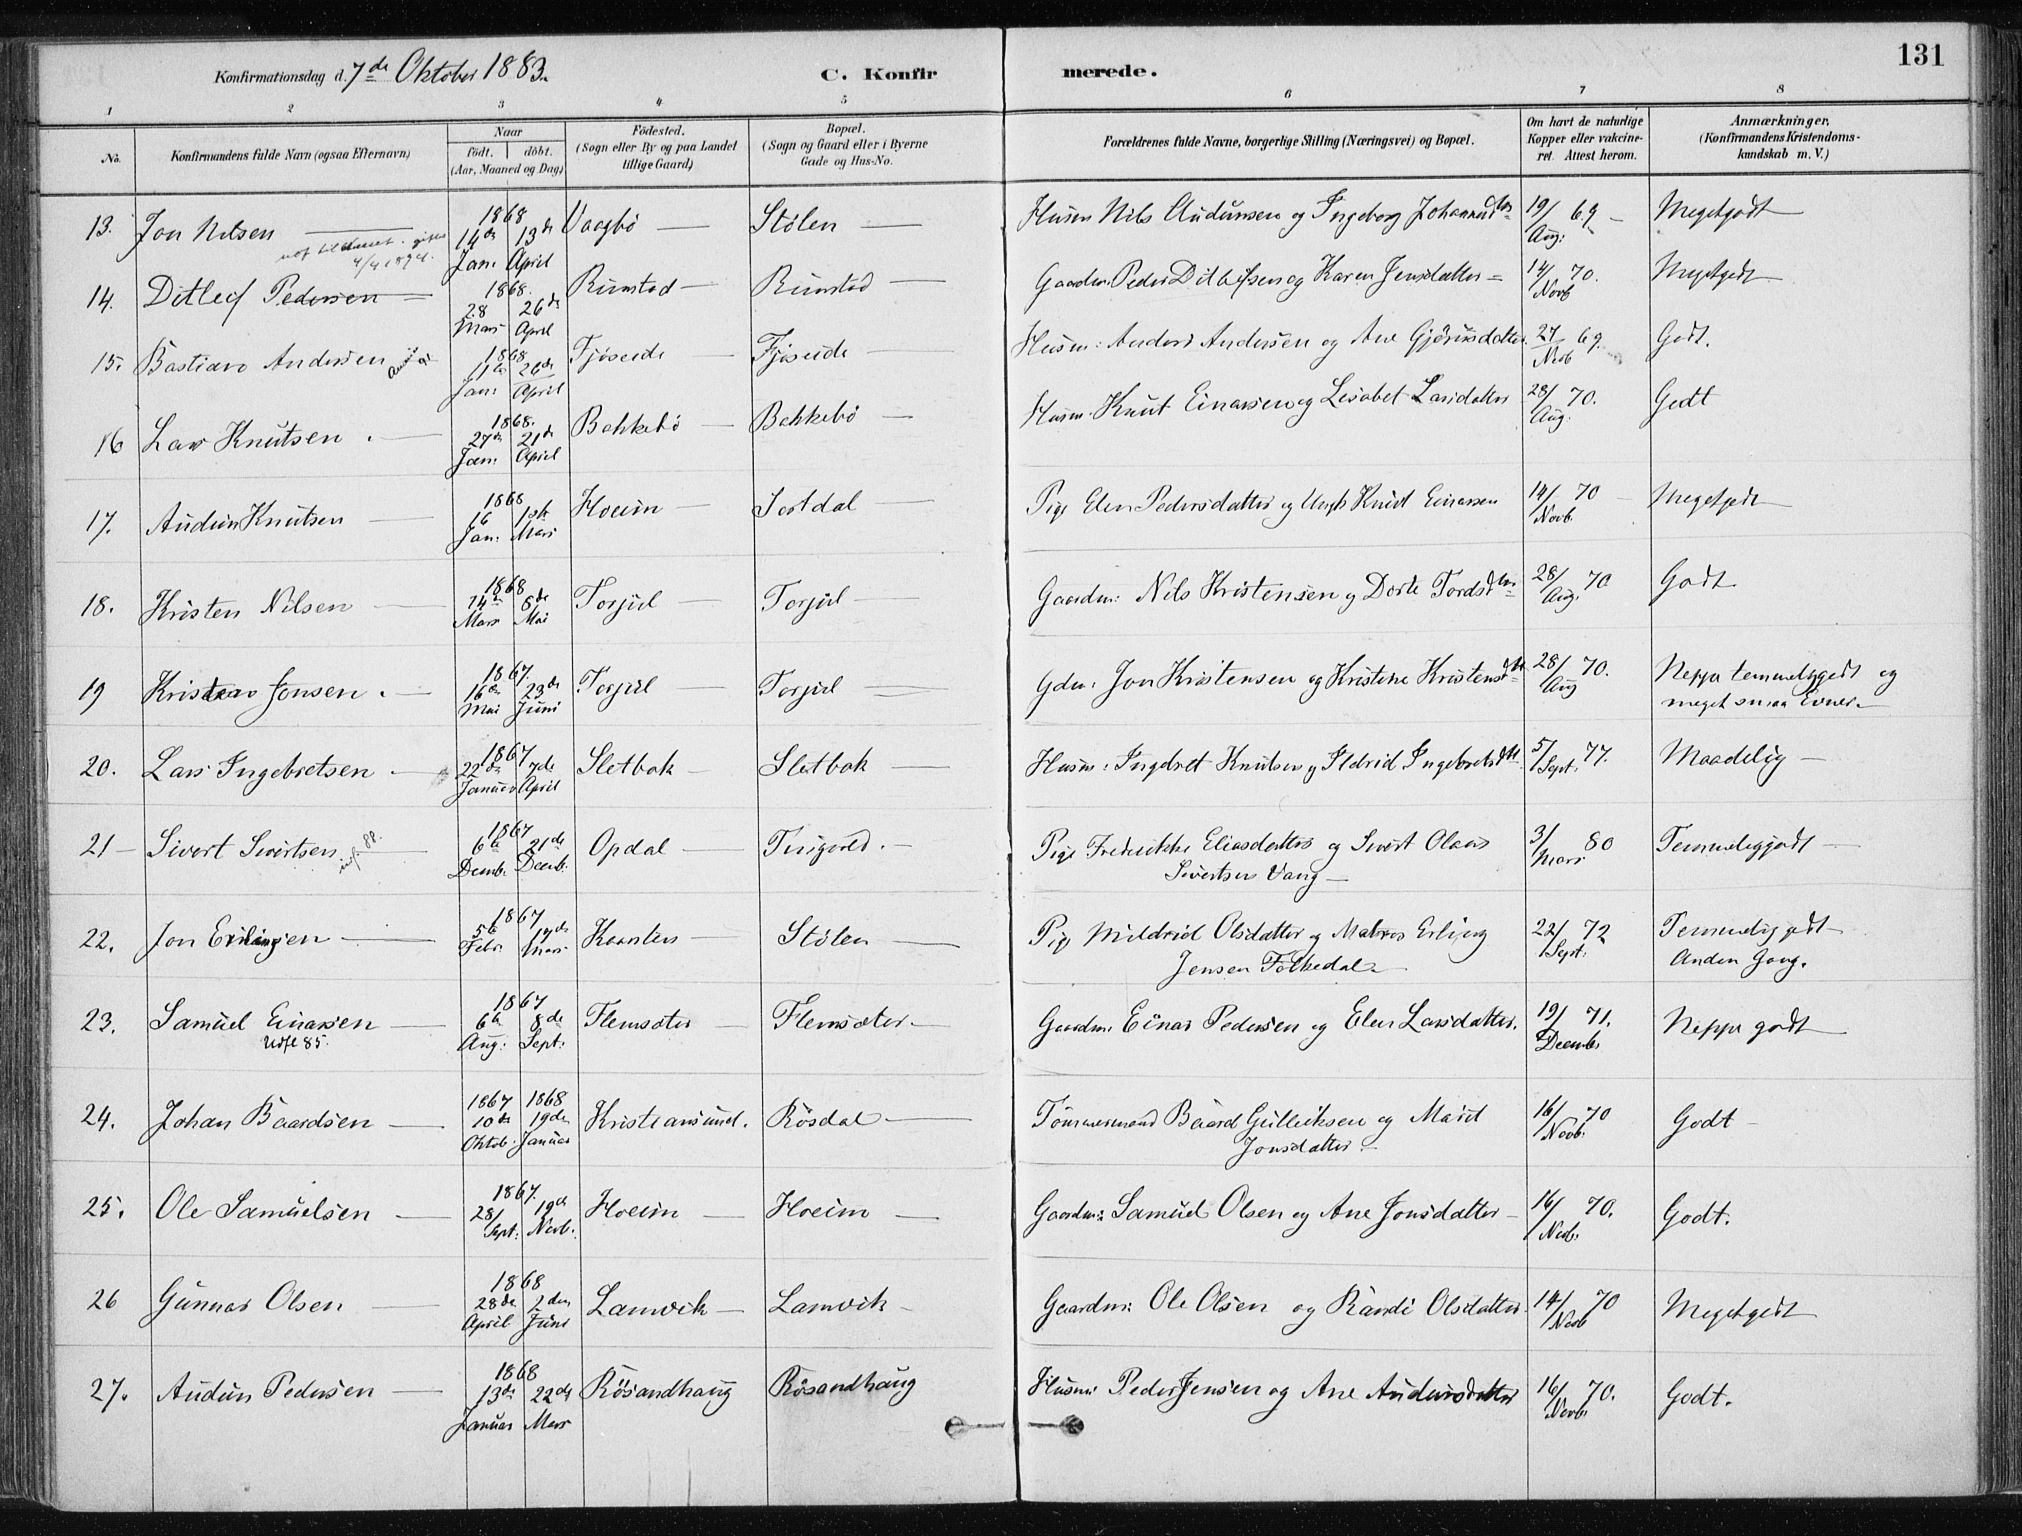 131
Konfirmationsdag d. 7de Oktober 1883.
C. Konfirmerede.
1 2 3 4 5 6 7 8
No.
Konfirmandens fulde Navn (ogsaa Efternavn)
Naar
födt. döbt.
(Aar, Maaned og Dag)
Födested.
(Sogn eller By og paa Landet
tillige Gaard)
Bopæl.
(Sogn og Gaard eller i Byerne
Gade og Hus-No.
Forældrenes fulde Navne, borgerlige Stilling (Næringsvei) og Bopæl.
Om havt de naturlige
Kopper eller vakcine-
ret. Attest herom.
Anmærkninger.
(Konfirmandens Kristendoms-
kundskab m. V.)
13. Jon Nilsen 1868 14de Jan. 13de April Vaagbø Stølen Husm Nils Audunsen og Ingeborg Johannesdtr 19/Aug: 69 Megetgodt
4/4 1894.
14. Ditlef Pedersen 1868. 28 Mars 26de April Rimstad Rimstad Gaardm. Peder Ditlefsen og Karen Jensdatter 14/Novb 70. Megetgodt
15. Bastian Andersen 1868 11te Jan: 26de April Fjøseide Fjøseide Husm: Anders Andersen og Ane Gjørusdatter 27/Novb 69. Godt.
16 Lars Knutsen 1868. 27de Jan: 21de April Bakkebø Bakkebø Husm. Knut Einarsen og Lisabet Larsdatter 28/Aug. 70. Godt
17. Audun Knutsen 1868 16 Jan: 1ste Mars Hoeim Sortdal Pige Elen Pedersdatter og Ungk Knut Einarsen 14/Novb. 70 Megetgodt
18. Kristen Nilsen 1868 14de Mars 8de Mai Torjul Torjul Gaardm: Nils Kristensen og Dorte Tordsdtr 28/Aug. 70 Godt
19 Kristian Jonsen. 1867. 16de Mai 23de Juni Torjul Torjul Gdm. Jon Kristensen og Kristine Kristensdtr 28/Aug 70. Neppe temmeliggodt og
meget smaa Evner.
20. Lars Ingebretsen. 1867 22de Januar 7de April Sletbak Sletbak Husm: Ingebret Knutsen og Ildrid Ingebretsdtr 5/Sept. 77. Maadelig
21 Sivert Sivertsen 1867 6te Decmb. 21de Decmb. Opdal Tingvold. Pige Frederikke Eliasdatter og Sivert Olaus
Sivertsen Vang 3/Mars 80 Temmeliggodt
22. Jon Erlingsen 1867 5te Febr. 17de Mars Kaarsten Stølen Pige Mildrid Olsdatter og Matros Erling
Jensen Folkedal 22/Sept. 72 Temmeliggodt
Anden Gang.
23. Samuel Einarsen 1867 6te Aug: 8de Sept: Flemsæter Flemsæter. Gaardm. Einar Pedersen og Elen Larsdatter. 19/Decmb. 71. Neppe godt
Udfl 85.
24. Johan Baardsen 1867 10de Oktob. 1868 19de Januar Kristiansund. Røsdal Tømmermand Baard Gulleiksen og Marit
Jonsdatter 16/Novb. 70 Godt
25. Ole Samuelsen 1867. 28/Sept: 19de Novb. Hoeim Hoeim Gaardm: Samuel Olsen og Ane Jonsdatter 16/Novb. 70. Godt.
26 Gunnar Olsen 1868 28de April 2den Juni Lamvik Lamvik Gaardm: Ole Olsen og Randi Olsdatter 14/Novb 70 Megetgodt
27. Audun Pedersen 1868 13de Januar 22de Mars Røsandhaug Røsandhaug Husm: Peder Jensen og Ane Audunsdatter 16/Novb. 70. Godt.